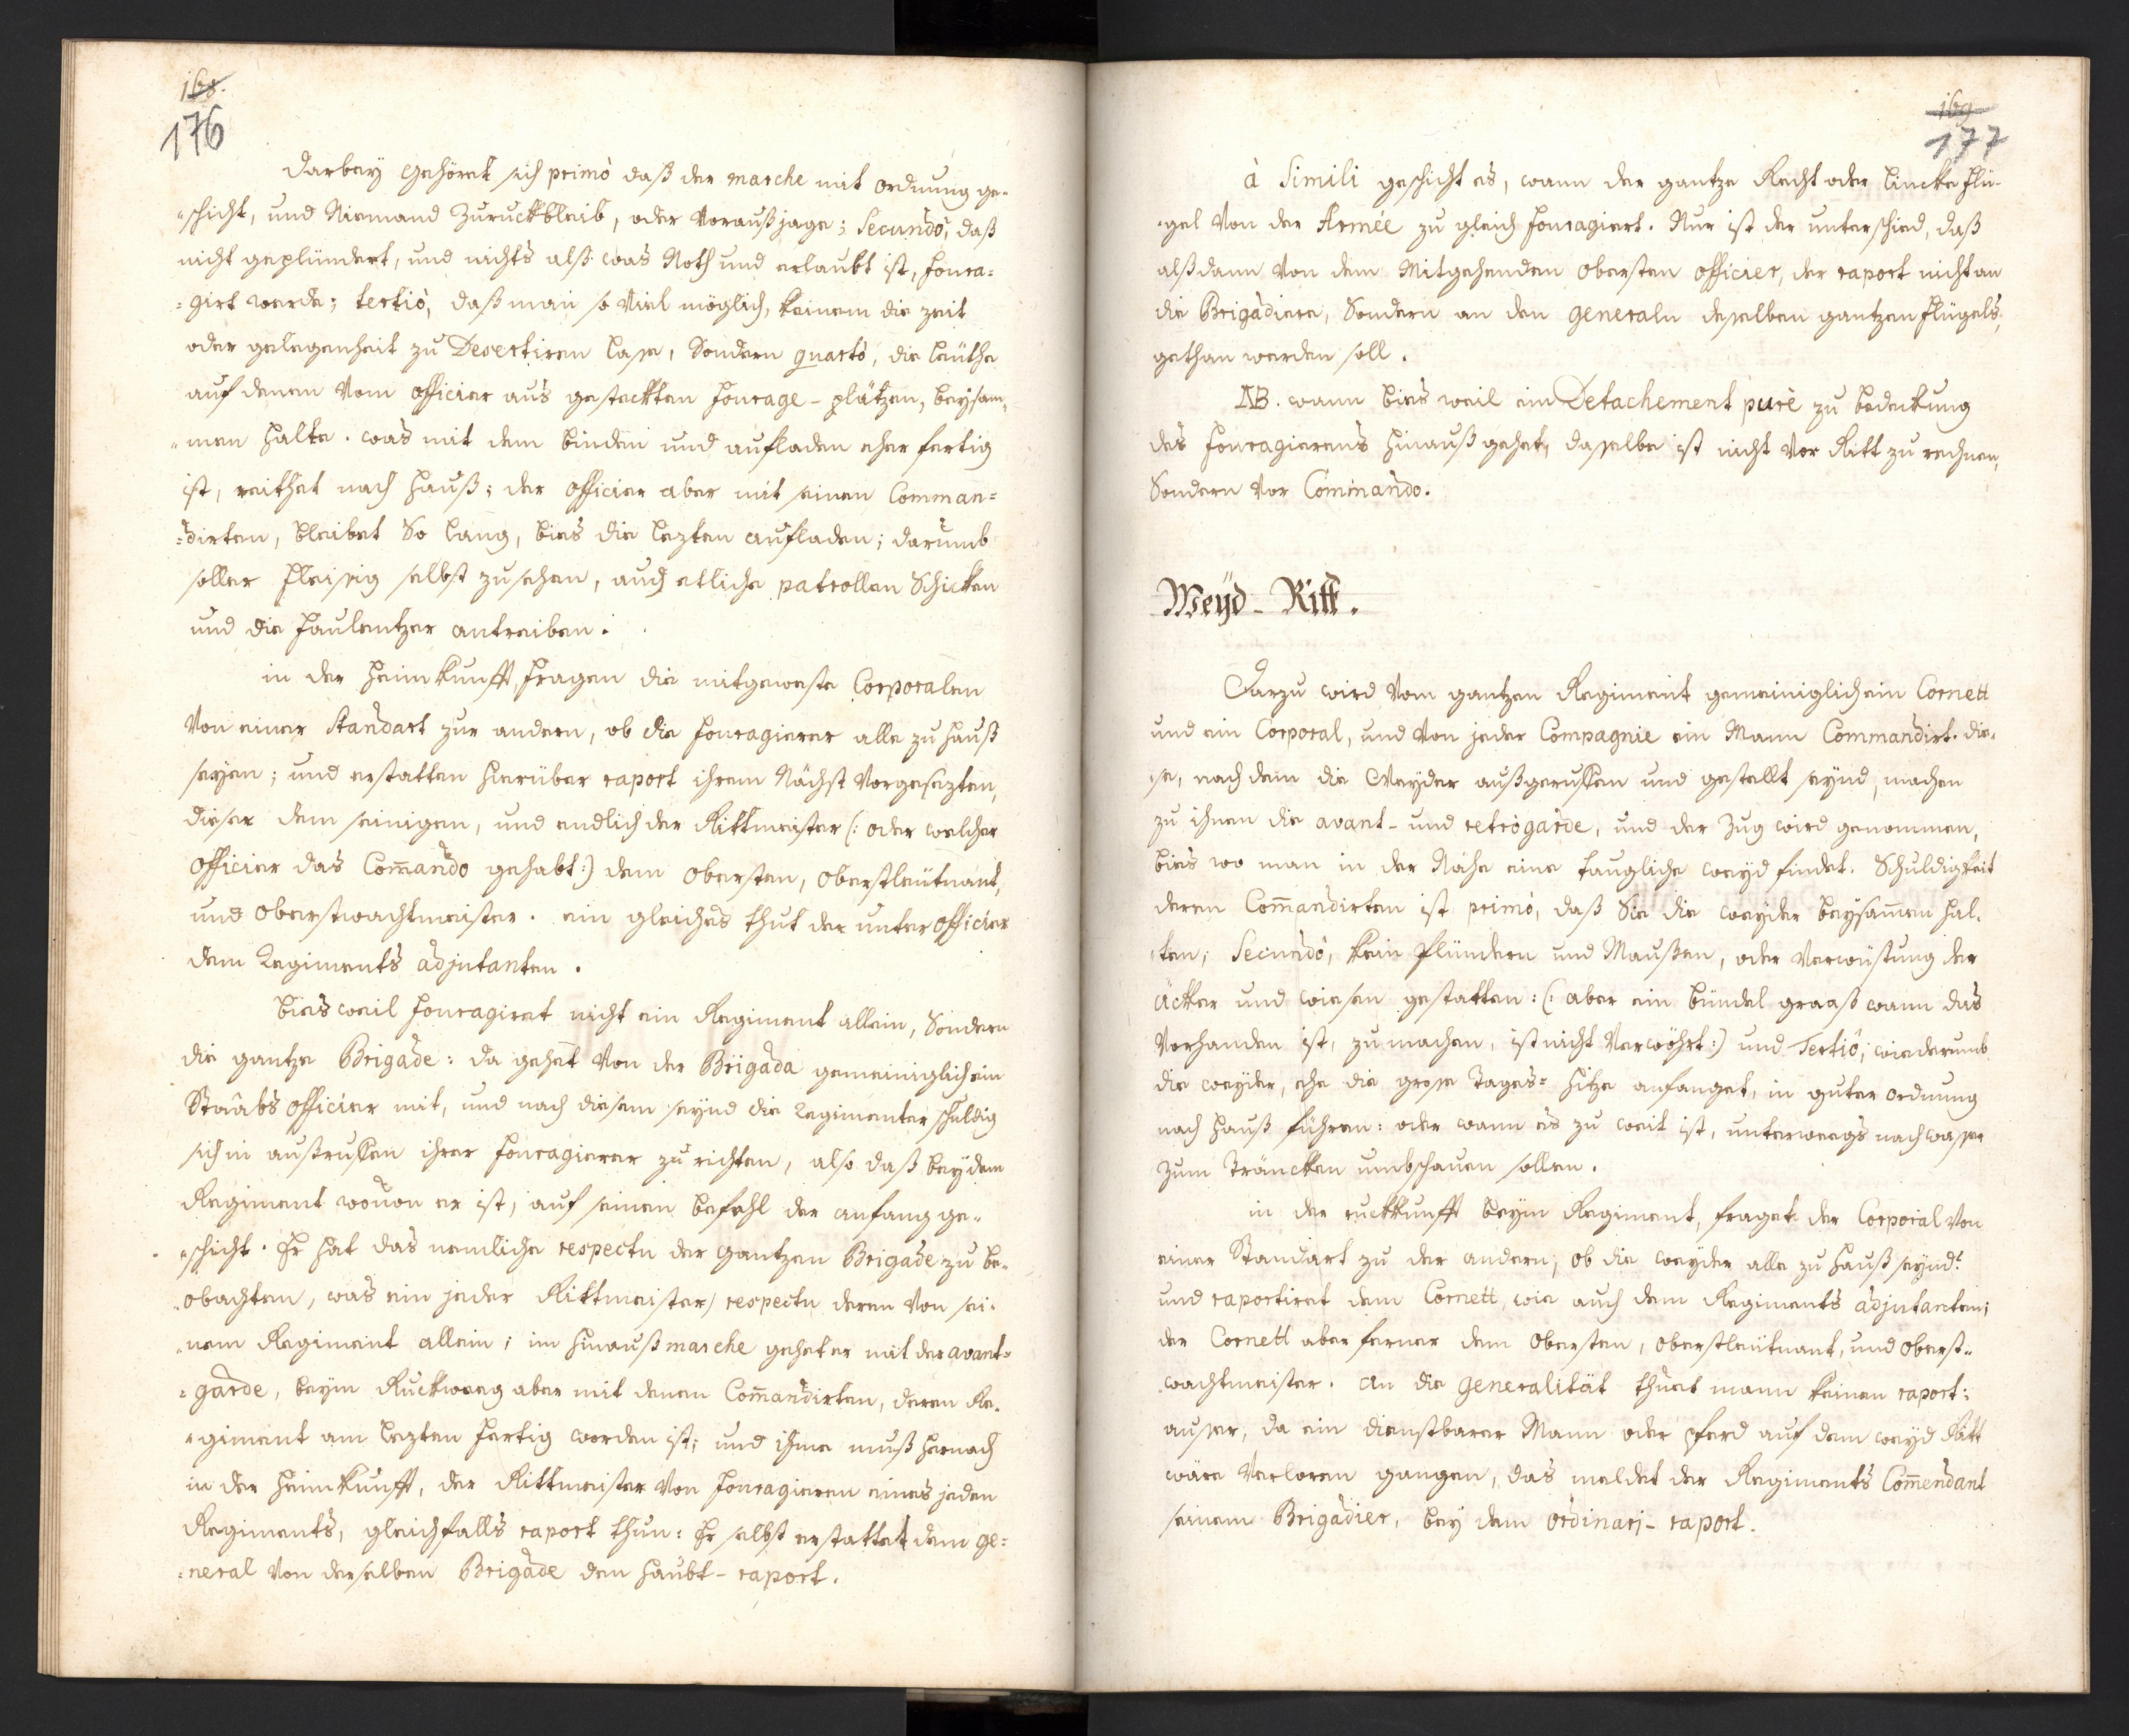 168.
176
Darbeÿ gehöret sich primò daß der marche mit ordnung ge-
"schicht, und Niemand Zuruckbleib, oder Vorauß jage; Secundò, daß
nicht geplündert, und nichts alß was Noth und erlaubt ist, foura=
=girt werde; tertiò, daß man so Viel möglich, keinem die zeit
oder gelegenheit zu Desertiren lasse, Sondern quartò, die leüthe
auf denen Vom officier aus gesteckten fourage-plätzen, beÿsam,
"men halte. was mit dem binden und aufladen eher fertig
ist, reithet nach hauß; der officier aber mit seinen Comman=
=dirten, bleibet So lang, bies die lezten aufladen; darumb
soller fleissig selbst zusehen, auch etliche patrollen Schicken
und die faulentzer antreiben.
in der heimkunfft, fragen die mitgeweste Corporalen
Von einer Standart zur andern, ob die fouragierer alle zu hauß
seÿen; und erstatten hierüber raport ihrem Nächst Vorgesezten,
dieser dem seinigen, und endlich der Rittmeister (: oder welcher
officier das Com̄ando gehabt:) dem obersten, oberstleütnant,
und oberstwachtmeister. ein gleiches thut der unter officier
dem Regiments adjutanten.
bies weil fouragiret nicht ein Regiment allein, Sondern
die gantze Brigade: da gehet Von der Brigada gemeiniglich ein
Staabs officier mit, und nach diesem seÿnd die Regimenter schuldig
sich in außruffen ihrer fouragierer zu richten, also daß beÿ dem
Regiment wovon er ist, auf seinen befehl der anfang ge-
"schicht. Er hat das nemliche respectu der gantzen Brigade zu be-
"obachten, was ein jeder Rittmeister, respectu deren Von sei-
"nem Regiment allein; im hinauß marche gehet er mit der avant=
=garde, beÿm Ruckweeg aber mit denen Com̄andirten, deren Re-
"giment am lezten fertig worden ist; und ihme muß hernach
in der heimkunfft, der Rittmeister Von fouragieren eines jeden
Regiments, gleichfalls raport thun: Er selbst erstattet dem ge=
=neral Von derselben Brigade den haubt-raport.
169
177
à Simili geschicht es, wann der gantze Recht oder lincke flü-
"gel Von der Armée zu gleich fouragiert. Nur ist der unterschied, daß
alßdann Von dem Mitgehenden obersten officier, der raport nicht an
die Brigadiere, Sondern an den generaln desselben gantzen flügels,
gethan werden soll.
NB. wann bies weil ein Detachement purè zu bedeckung
des fouragierens hinauß gehet, dasselbe ist nicht Vor Ritt zu rechnen,
Sondern Vor Commando.
Weÿd-Ritt.
Darzu wird Vom gantzen Regiment gemeiniglich ein Cornett
und ein Corporal, und Von jeder Compagnie ein Mann Commandirt. die-
"se, nach dem die Weÿder außgeruffen und gestellt seÿnd, machen
zu ihnen die avant- und retrogarde, und der Zug wird genommen,
bies wo man in der Nähe eine taugliche weÿd findet. Schuldigkeit
deren Com̄andirten ist primò, daß Sie die weÿder beÿsam̄en hal-
"ten; Secundò, kein plündern und Maußen, oder Verwüstung der
äcker und wiesen gestatten: (: aber ein bündel graaß wann das
Vorhanden ist, zu machen, ist nicht Verwöhrt:) und Tertiò, wiederumb
die weÿder, ehe die grosse Tages=hitze anfanget, in guter ordnung
nach hauß führen: oder wann es zu weit ist, unterweegs nach wasser
zum Träncken umbschauen sollen.
in der ruckkunfft beÿm Regiment, fraget der Corporal Von
einer Standart zu der andern; ob die weÿder alle zu hauß seÿnd?
und raportiret dem Cornett, wie auch dem Regiments adjutanten;
der Cornett aber ferner dem obersten, oberstleütnant, und oberst-
wachtmeister. an die generalität thuet mann keinen raport:
ausser, da ein dienstbarer Mann oder pferd auf dem weÿd Ritt
wäre Verloren gangen, das meldet der Regiments Com̄endant
seinem Brigadier, beÿ dem ordinari-raport.